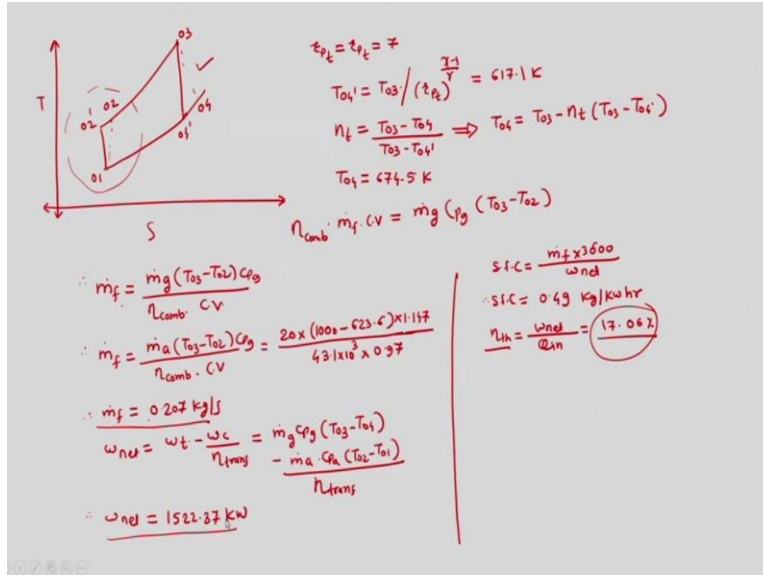 T
S
01
02'
02
03
04'
04
r_{Pt} = r_{Pt} = 7
T_{04'} = T_{03} / (r_{Pt})^{\frac{γ-1}{γ}} = 617.1 K
η_t = \frac{T_{03} - T_{04}}{T_{03} - T_{04'}} ⟹ T_{04} = T_{03} - η_t (T_{03} - T_{04'})
T_{04} = 674.5 K
η_{comb} · ṁ_f · C.V = ṁ_g C_{pg} (T_{03} - T_{02})
∴ ṁ_f = \frac{ṁ_g (T_{03} - T_{02}) C_{pg}}{η_{comb} · C.V.}
∴ ṁ_f = \frac{ṁ_a (T_{03} - T_{02}) C_{pg}}{η_{comb} · C.V} = \frac{20 × (1000 - 623.6) × 1.147}{43.1 × 10^3 × 0.97}
∴ ṁ_f = 0.207 kg/s
ω_{net} = ω_t - \frac{ω_c}{η_{trans}} = ṁ_g C_{pg} (T_{03} - T_{04}) - \frac{ṁ_a · C_{pa} (T_{02} - T_{01})}{η_{trans}}
∴ ω_{net} = 1522.37 kW
S.f.C = \frac{ṁ_f × 3600}{ω_{net}}
∴ S.f.C = 0.49 kg/kw hr
η_{th} = \frac{ω_{net}}{Q_{in}} = 17.06 %